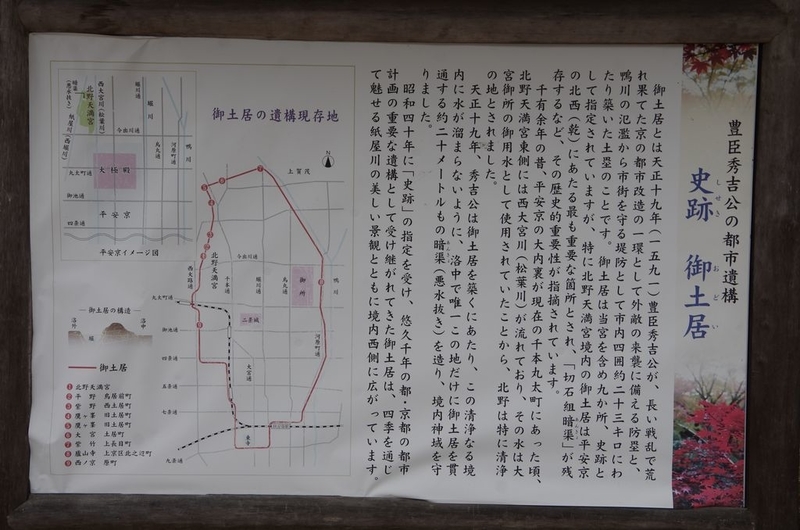 豊臣秀吉公の都市遺構
史跡 御土居
しせき おどい
御土居とは天正十九年(一五九一)豊臣秀吉公が、長い戦乱で荒
れ果てた京の都市改造の一環として外敵の来襲に備える防塁と、
鴨川の氾濫から市街を守る堤防として市内四囲約二十三キロにわ
たり築いた土塁のことです。御土居は当宮を含め九か所、史跡と
して指定されていますが、特に北野天満宮境内の御土居は平安京
の北西(乾)にあたる最も重要な箇所とされ、「切石組暗渠」が残
存するなど、その歴史的重要性が指摘されています。
千有余年の昔、平安京の大内裏が現在の千本丸太町にあった頃、
北野天満宮東側には西大宮川(松葉川)が流れており、その水は大
宮御所の御用水として使用されていたことから、北野は特に清浄
の地とされました。
天正十九年、秀吉公は御土居を築くにあたり、この清浄なる境
内に水が溜まらないように、洛中で唯一この地だけに御土居を貫
通する約二十メートルもの暗渠(悪水抜き)を造り、境内神域を守
りました。
昭和四十年に「史跡」の指定を受け、悠久千年の都、京都の都市
計画の重要な遺構として受け継がれてきた御土居は、四季を通じ
て魅せる紙屋川の美しい景観とともに境内西側に広がっています。
御土居の遺構現存地
N
上賀茂
鴨川
北野天満宮
西大路通
今出川通
千本通
堀川通
烏丸通
御所
二条城
河原町通
大宮通
丸太町通
御池通
四条通
五条通
七条通
九条通
東寺
北野天満宮
西大宮川(松葉川)
堀川通
堀川
今出川通
烏丸通
河原町通
鴨川
紙屋川(西堀川)
大極殿
丸太町通
御池通
四条通
平安京
平安京イメージ図
御土居の構造
洛外
堀
洛中
御土居
1 北野天満宮
2 平野 鳥居前町
3 紫野 西土居町
4 鷹ヶ峯 旧土居町
5 鷹ヶ峯 旧土居町
6 大宮 土居町
7 紫竹 上長目町
8 蘆山寺 上京区北之辺町
9 西ノ京 原町